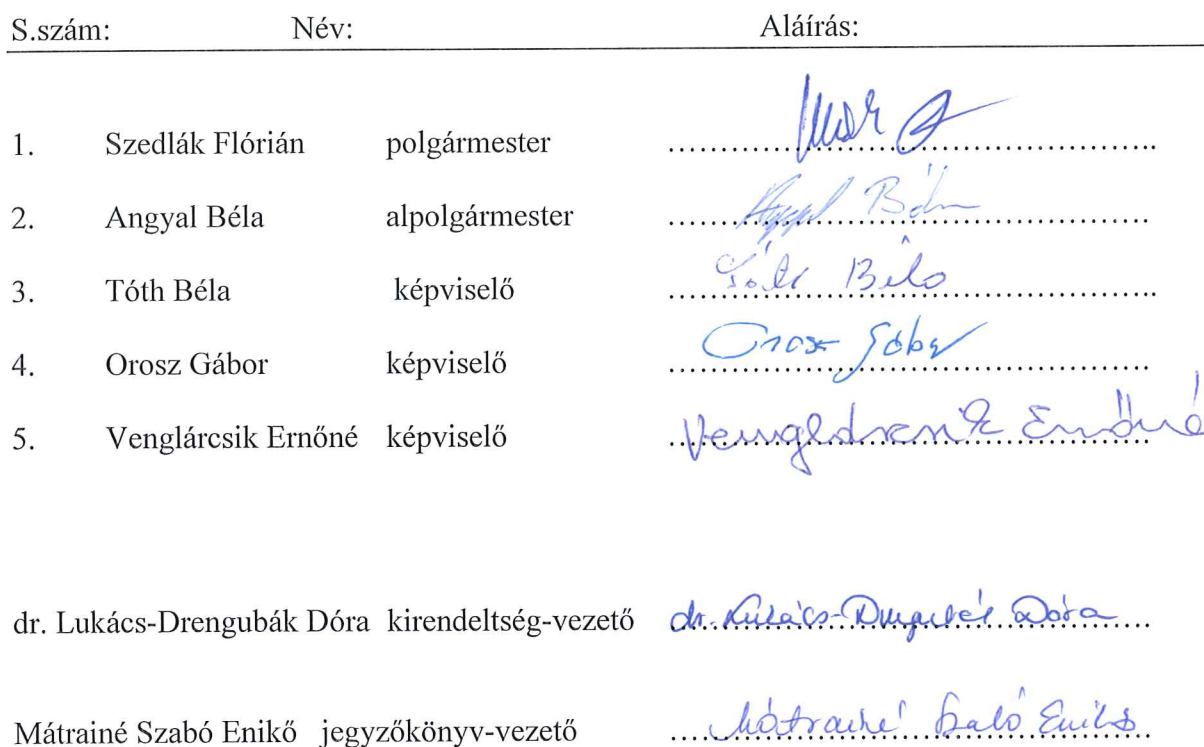 S.szám: Név: Aláírás:
1. Szedlák Flórián polgármester ........................
2. Angyal Béla alpolgármester Angyal Béla
3. Tóth Béla képviselő Tóth Béla
4. Orosz Gábor képviselő Orosz Gábor
5. Venglárcsik Ernőné képviselő Venglárcsik Ernőné
dr. Lukács-Drengubák Dóra kirendeltség-vezető dr. Lukács-Drengubák Dóra
Mátrainé Szabó Enikő jegyzőkönyv-vezető Mátrainé Szabó Enikő